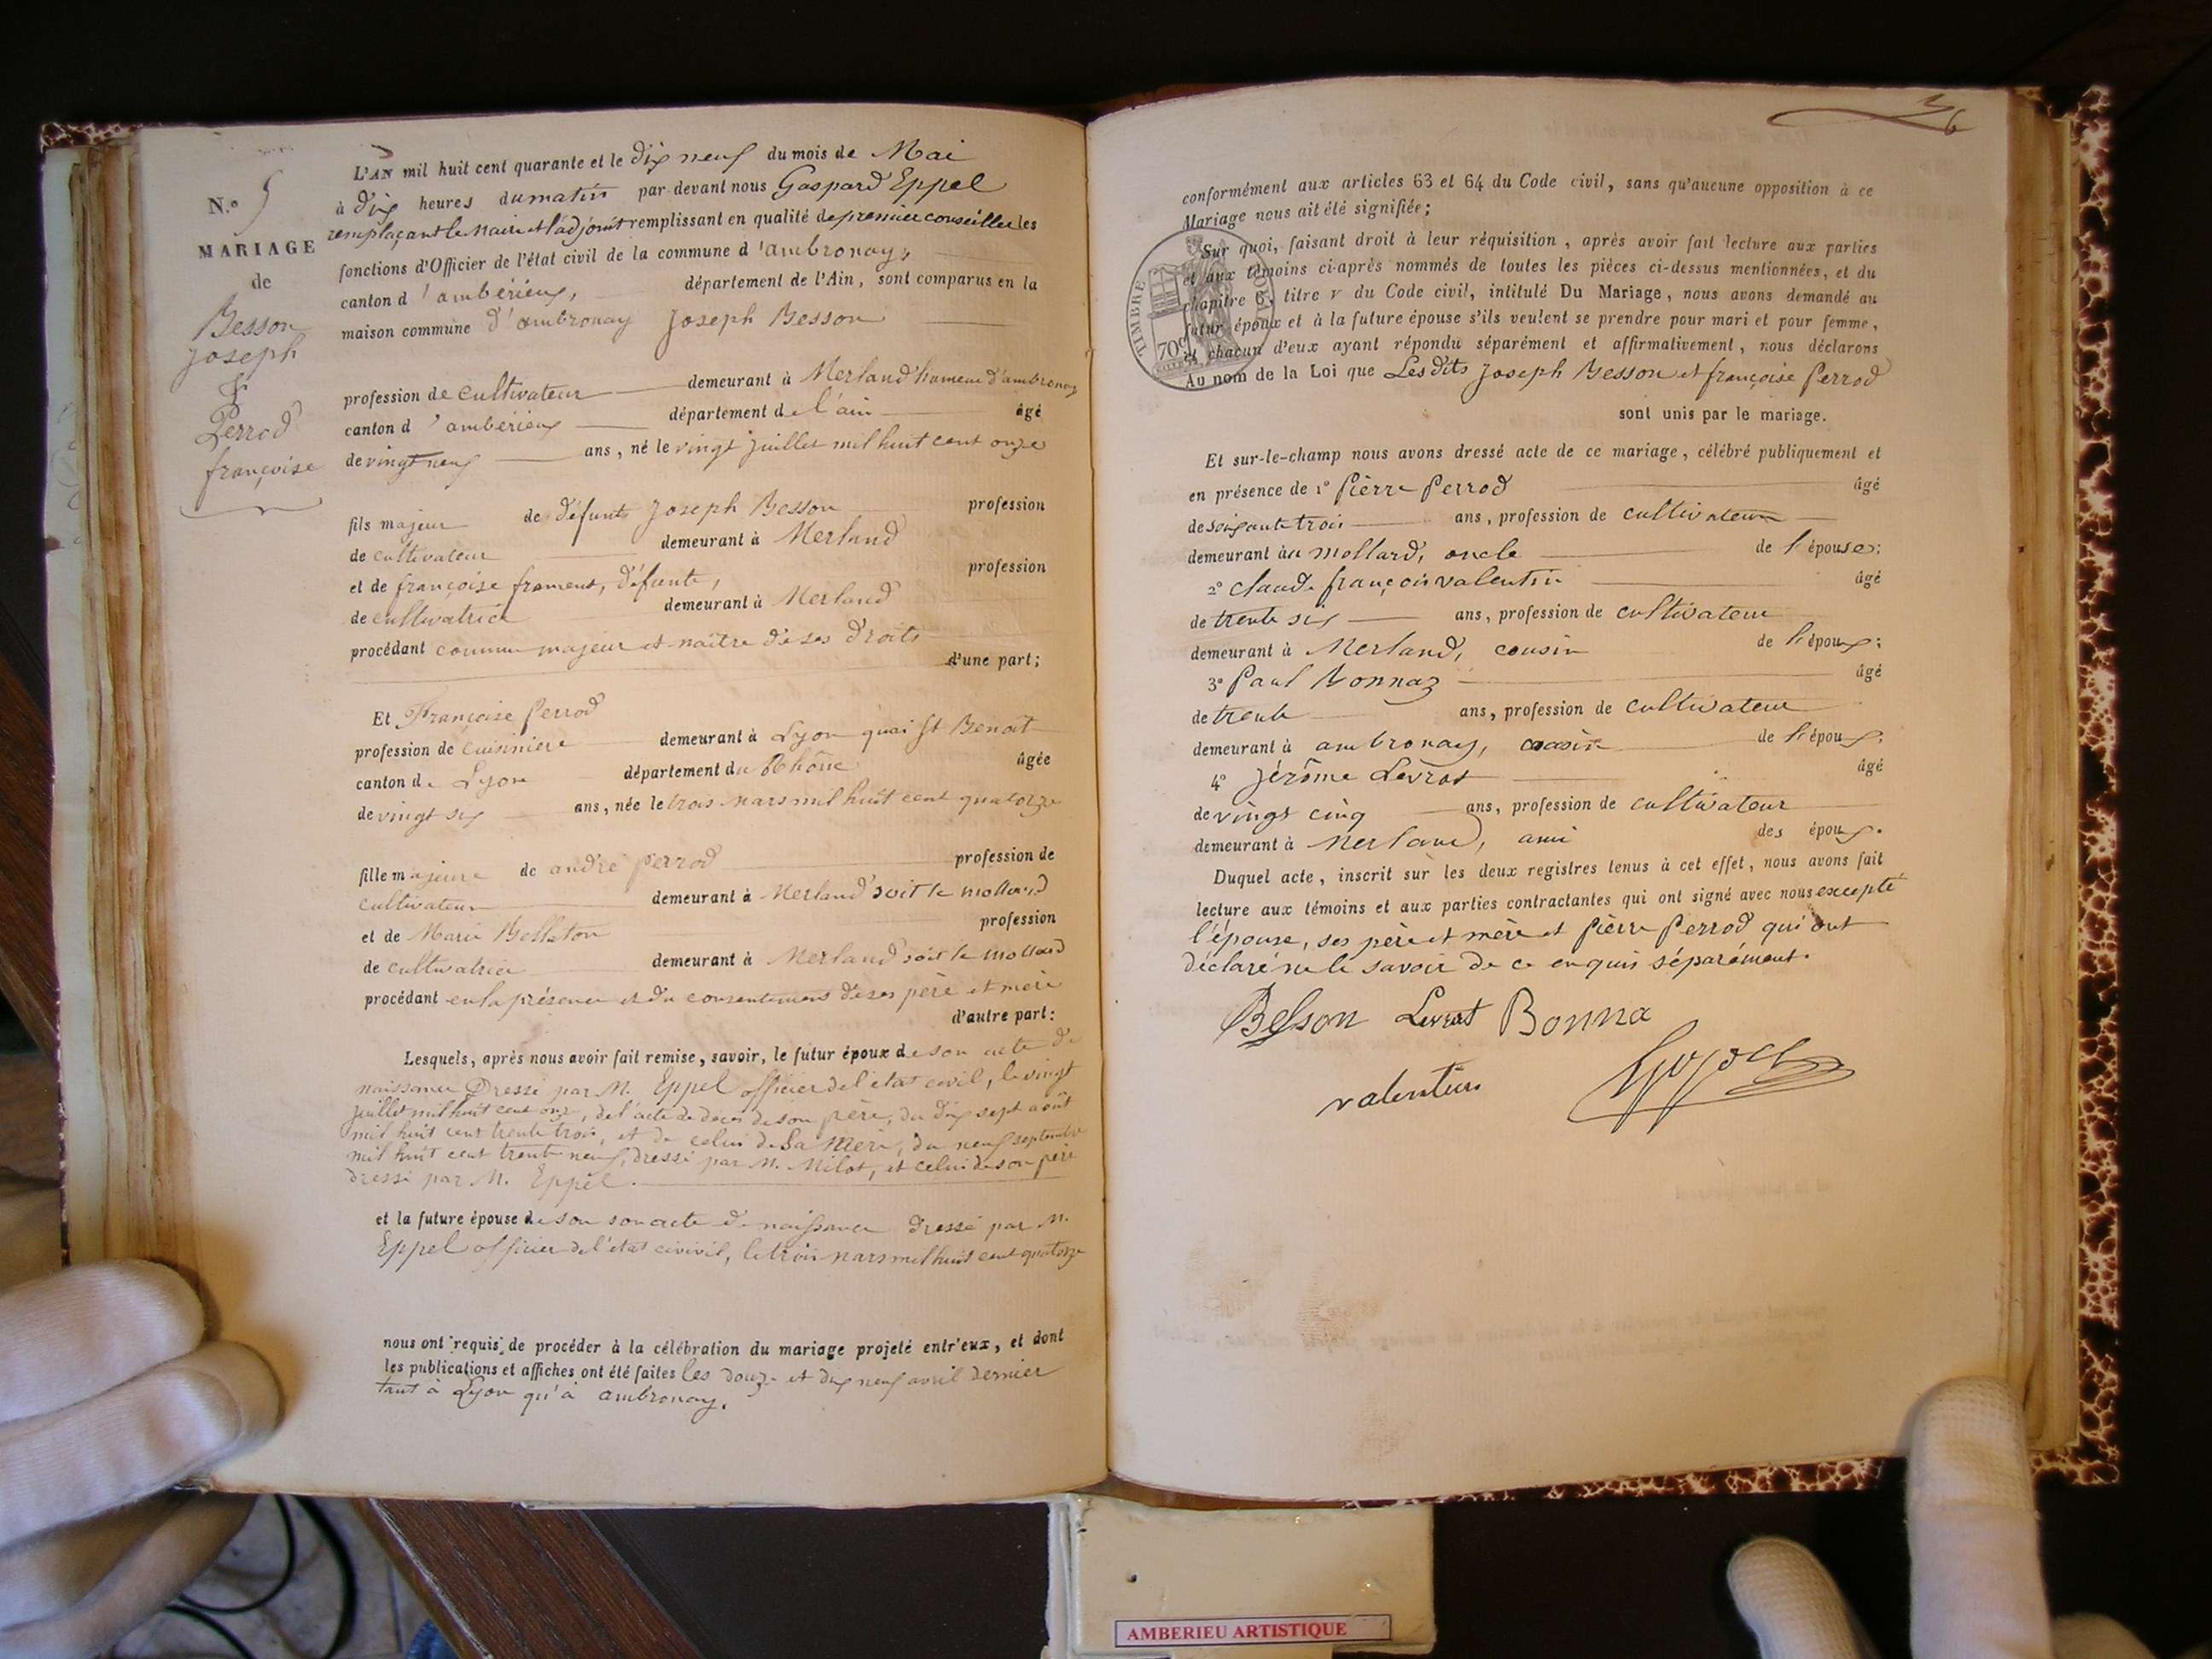 N.° 5
MARIAGE
de
Besson
joseph
&
Perrod
françoise
L'AN mil huit cent quarante et le dix neuf du mois de Mai
à dix heures du matin par-devant nous Gaspard Eppel
remplaçant le Maire et l'adjoint remplissant en qualité de premier conseiller les
fonctions d'Officier de l'état civil de la commune d'ambronay,
canton d'ambérieux, département de l'Ain, sont comparus en la
maison commune d'ambronay Joseph Besson
profession de cultivateur demeurant à Merland hameau d'ambronay
canton d'ambérieux département de l'ain âgé
de vingt neuf ans, né le vingt juillet mil huit cent onze
fils majeur de défunts Joseph Besson profession
de cultivateur demeurant à Merland
et de françoise froment, défunte, profession
de cultivatrice demeurant à Merland
procédant comme majeur et maître de ses droits
d'une part;
Et Françoise Perrod
profession de cuisiniere demeurant à Lyon quai St Benoit
canton de Lyon département du Rhône âgée
de vingt six ans, née le trois mars mil huit cent quatorze
fille majeure de andré Perrod profession de
cultivateur demeurant à Merland soit le mollard
et de Marie Belleton profession
de cultivatrice demeurant à Merland soit le mollard
procédant en la présence et du consentement de ses père et mère
d'autre part:
Lesquels, après nous avoir fait remise, savoir, le futur époux de son acte de
naissance Dressé par M. Eppel officier de l'état civil, le vingt
juillet mil huit cent onze, de l'acte de décès de son père, du dix sept août
mil huit cent trente trois, et de celui de Sa Mère, du neuf septembre
mil huit cent trente neuf, dressé par M. Milot, et celui de son père
dressé par M. Eppel.
et la future épouse de son son acte de naissance dressé par M.
Eppel officier de l'état civivil, le trois mars mil huit cent quatorze
nous ont requis de procéder à la célébration du mariage projeté entr'eux, et dont
les publications et affiches ont été faites les douze et dix neuf avril dernier
tant à Lyon qu'à ambronay.
36
conformément aux articles 63 et 64 du Code civil, sans qu'aucune opposition à ce
Mariage nous ait été signifiée;
Sur quoi, faisant droit à leur réquisition, après avoir fait lecture aux parties
et aux témoins ci-après nommés de toutes les pièces ci-dessus mentionnées, et du
chapitre 6, titre v du Code civil, intitulé Du Mariage, nous avons demandé au
futur époux et à la future épouse s'ils veulent se prendre pour mari et pour femme,
et chacun d'eux ayant répondu séparément et affirmativement, nous déclarons
Au nom de la Loi que Lesdits Joseph Besson et françoise Perrod
sont unis par le mariage.
TIMBRE ROYAL
70c
Et sur-le-champ nous avons dressé acte de ce mariage, célébré publiquement et
en présence de 1° Pièrre Perrod âgé
de soixante trois ans, profession de cultivateur
demeurant au mollard, oncle de l'épouse;
2° claude françois valentin âgé
de trente six ans, profession de cultivateur
demeurant à Merland, cousin de l'époux;
3° Paul Bonnaz âgé
de trente ans, profession de cultivateur
demeurant à ambronay, cousin de l'époux;
4° Jérôme Levrat âgé
de vingt cinq ans, profession de cultivateur
demeurant à Merland, ami des époux.
Duquel acte, inscrit sur les deux registres tenus à cet effet, nous avons fait
lecture aux témoins et aux parties contractantes qui ont signé avec nous excepté
l'épouse, ses père et mère et Pièrre Perrod qui ont
déclaré ne le savoir de ce enquis séparément.
Besson Levrat Bonna
valentin
AMBERIEU ARTISTIQUE